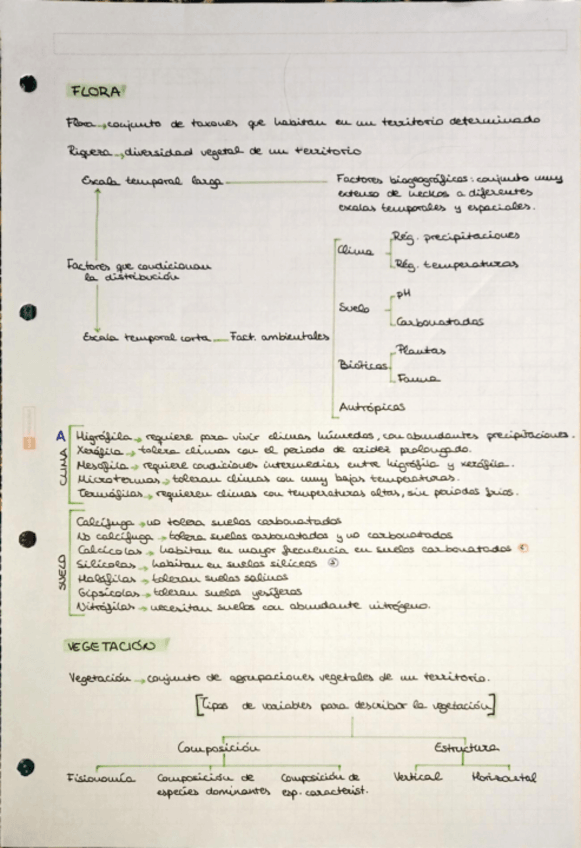 FLORA
Flora → conjunto de taxones que habitan en un territorio determinado
Riqueza → diversidad vegetal de un territorio
Escala temporal larga
Factores biogeográficos: conjunto muy
extenso de hechos a diferentes
escalas temporales y espaciales.
Factores que condicionan
la distribución
Escala temporal corta
Fact. ambientales
Clima
Rég. precipitaciones
Rég. temperaturas
Suelo
pH
Carbonatados
Bióticos
Plantas
Fauna
Antrópicos
A
CLIMA
Higrófila → requiere para vivir climas húmedos, con abundantes precipitaciones.
Xerófila → tolera climas con el periodo de aridez prolongado.
Mesófila → requiere condiciones intermedias entre higrófila y xerófila.
Microtermas → toleran climas con muy bajas temperaturas.
Termófilas → requieren climas con temperaturas altas, sin periodos fríos.
SUELO
Calcífuga → no tolera suelos carbonatados
No calcífuga → tolera suelos carbonatados y no carbonatados
Calcícolas → habitan en mayor frecuencia en suelos carbonatados
Silícolas → habitan en suelos silíceos ②
Halófilas → toleran suelos salinos
Gipsícolas → toleran suelos yesíferos
Nitrófilas → necesitan suelos con abundante nitrógeno.
VEGETACIÓN
Vegetación → conjunto de agrupaciones vegetales de un territorio.
[Tipos de variables para describir la vegetación]
Composición
Estructura
Fisionomía
Composición de
especies dominantes
Composición de
esp. caracterist.
Vertical
Horizontal